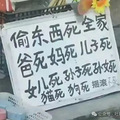 偷东西死全家
爸死妈死儿子死
女儿死孙子死孙女死
猫死狗死摇滚